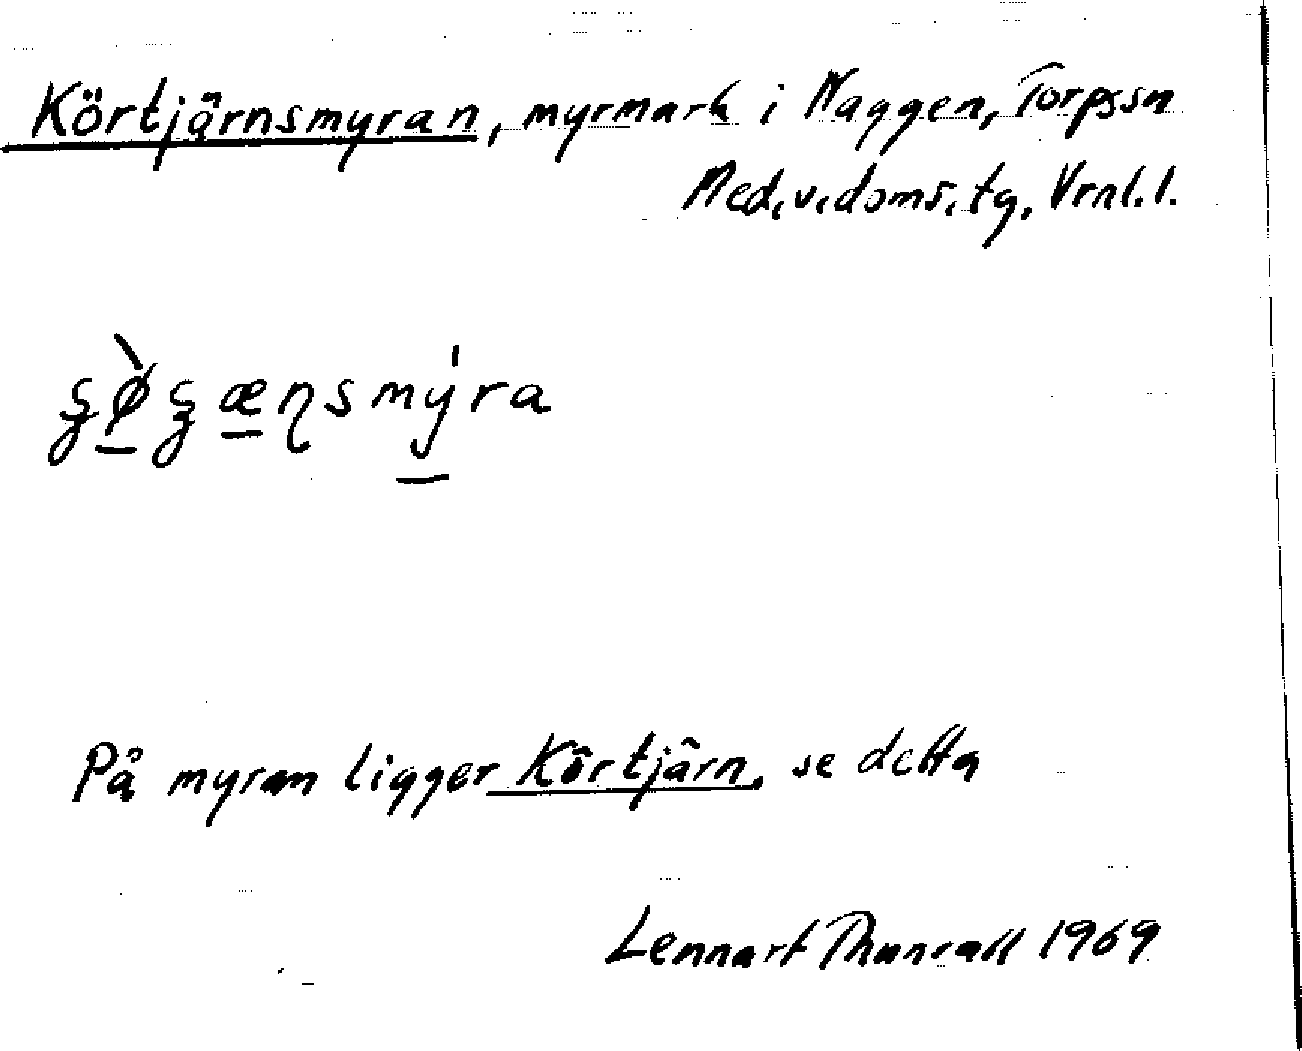 Körtjärnsmyran, myrmark i Naggen, Torps sn
Med. v. doms. tg, Vrnl. l.
myra
På myran ligger Körtjärn, se detta
Lennart 1969